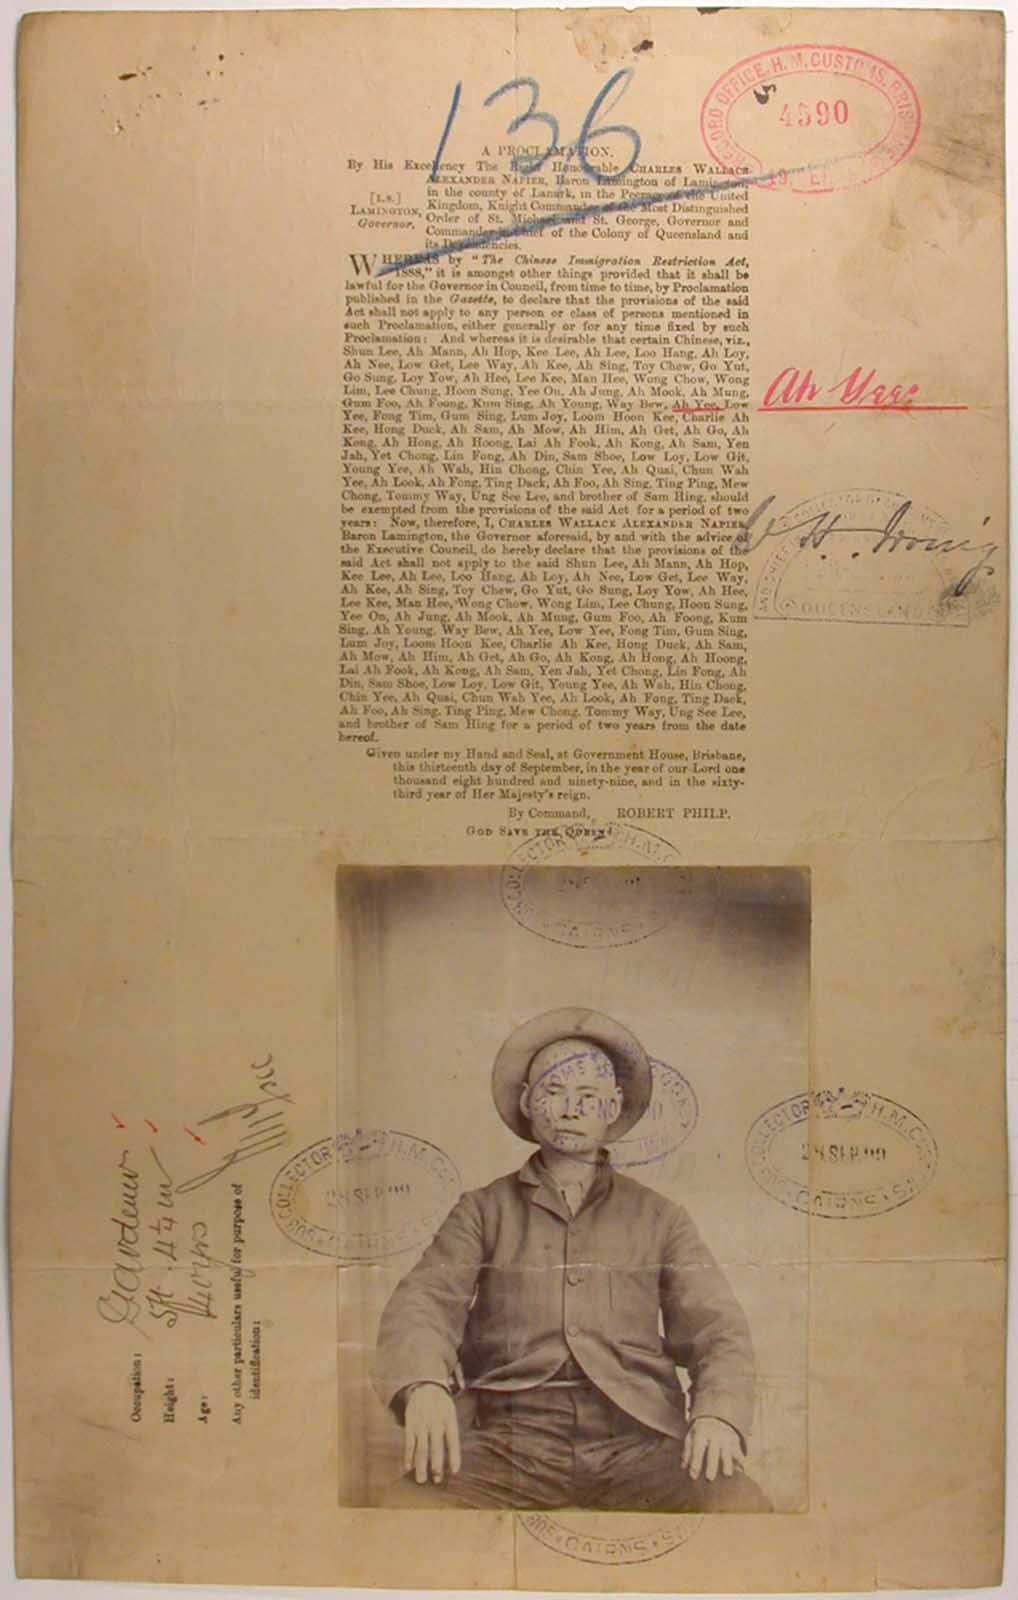 136
RECORD OFFICE. H. M. CUSTOMS, BRIS
4590
A PROCLAMATION.
By His Excellency The Right Honourable CHARLES WALLACE
ALEXANDER NAPIER, Baron Lamington of Lamington,
in the county of Lanark, in the Peerage of the United
[L.S.]
Kingdom, Knight Commander of the Most Distinguished
LAMINGTON,
Order of St. Michael and St. George, Governor and
Governor.
Commander-in-Chief of the Colony of Queensland and
its Dependencies.
WHEREAS by "The Chinese Immigration Restriction Act,
1888," it is amongst other things provided that it shall be
lawful for the Governor in Council, from time to time, by Proclamation
published in the Gazette, to declare that the provisions of the said
Act shall not apply to any person or class of persons mentioned in
such Proclamation, either generally or for any time fixed by such
Proclamation: And whereas it is desirable that certain Chinese, viz.,
Shun Lee, Ah Mann, Ah Hop, Kee Lee, Ah Lee, Loo Hang, Ah Loy,
Ah Nee, Low Get, Lee Way, Ah Kee, Ah Sing, Toy Chew, Go Yut,
Go Sung, Loy Yow, Ah Hee, Lee Kee, Man Hee, Wong Chow, Wong
Lim, Lee Chung, Hoon Sung, Yee On, Ah Jung, Ah Mook, Ah Mung,
Gum Foo, Ah Foong, Kum Sing, Ah Young, Way Bew, Ah Yee, Low
Yee, Fong Tim, Gum Sing, Lum Joy, Loom Hoon Kee, Charlie Ah
Kee, Hong Duck, Ah Sam, Ah Mow, Ah Him, Ah Get, Ah Go, Ah
Kong, Ah Hong, Ah Hoong, Lai Ah Fook, Ah Kong, Ah Sam, Yen
Jah, Yet Chong, Lin Fong, Ah Din, Sam Shoe, Low Loy, Low Git,
Young Yee, Ah Wah, Hin Chong, Chin Yee, Ah Quai, Chun Wah
Yee, Ah Look, Ah Fong, Ting Dack, Ah Foo, Ah Sing, Ting Ping, Mew
Chong, Tommy Way, Ung See Lee, and brother of Sam Hing, should
be exempted from the provisions of the said Act for a period of two
years: Now, therefore, I, CHARLES WALLACE ALEXANDER NAPIER,
Baron Lamington, the Governor aforesaid, by and with the advice of
the Executive Council, do hereby declare that the provisions of the
said Act shall not apply to the said Shun Lee, Ah Mann, Ah Hop,
Kee Lee, Ah Lee, Loo Hang, Ah Loy, Ah Nee, Low Get, Lee Way,
Ah Kee, Ah Sing, Toy Chew, Go Yut, Go Sung, Loy Yow, Ah Hee,
Lee Kee, Man Hee, Wong Chow, Wong Lim, Lee Chung, Hoon Sung,
Yee On, Ah Jung, Ah Mook, Ah Mung, Gum Foo, Ah Foong, Kum
Sing, Ah Young, Way Bew, Ah Yee, Low Yee, Fong Tim, Gum Sing,
Lum Joy, Loom Hoon Kee, Charlie Ah Kee, Hong Duck, Ah Sam,
Ah Mow, Ah Him, Ah Get, Ah Go, Ah Kong, Ah Hong, Ah Hoong,
Lai Ah Fook, Ah Kong, Ah Sam, Yen Jah, Yet Chong, Lin Fong, Ah
Din, Sam Shoe, Low Loy, Low Git, Young Yee, Ah Wah, Hin Chong,
Chin Yee, Ah Quai, Chun Wah Yee, Ah Look, Ah Fong, Ting Dack,
Ah Foo, Ah Sing, Ting Ping, Mew Chong, Tommy Way, Ung See Lee,
and brother of Sam Hing for a period of two years from the date
hereof.
Given under my Hand and Seal, at Government House, Brisbane,
this thirteenth day of September, in the year of our Lord one
thousand eight hundred and ninety-nine, and in the sixty-
third year of Her Majesty's reign.
By Command, ROBERT PHILP.
GOD SAVE THE QUEEN!
Ah Yee
QUEENSLAND
COLLECTOR H.M.C
CAIRNS
CUSTOMS
14 NO 00
SUB COLLECTOR H.M.CUS
28 SEP. 99
CAIRNS
SUB COLLECTOR H.M.CUS
28 SEP. 99
CAIRNS
SUB CAIRNS
Occupation: Gardener
Height: 5ft. 4¼ in
Age: 40 yrs
Any other particulars useful for purpose of
identification: